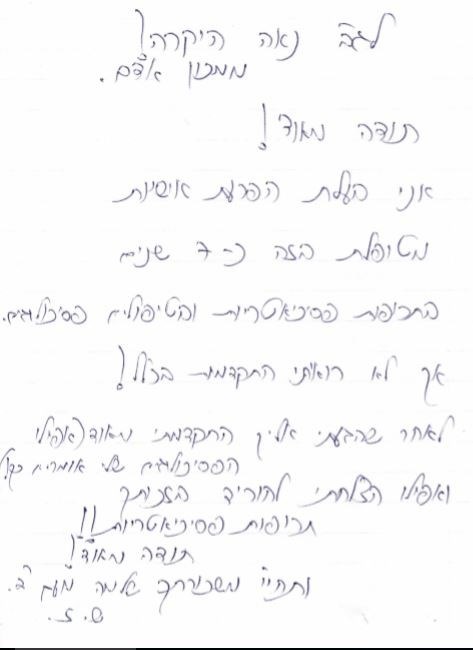 לגב' נאה היקרה!
ממכון אדם.
תודה מאוד!
אני בעלת הפרעת אישיות
מטופלת בזה כ- 7 שנים
בתרופות פסיכיאטריות ובטיפולים פסיכולוגים.
אך לא ראיתי התקדמות בכלל!
לאחר שהגעתי אליך התקדמתי מאוד (אפילו
הפסיכולוגים שלי אומרים כך)
ואפילו הצלחתי להוריד בזכותך
תרופות פסיכיאטריות!!
תודה מאוד!
ותהיי משכורתך שלמה מעם ה'.
ש. ז.